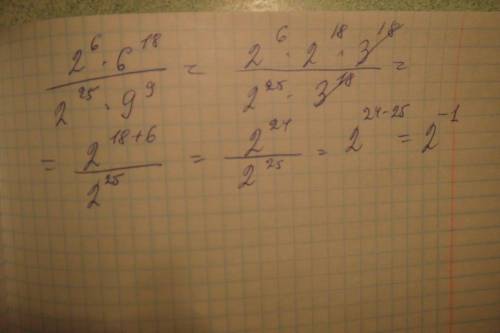 \frac{2^6 \cdot 6^{18}}{2^{25} \cdot 9^9} = \frac{2^6 \cdot 2^{18} \cdot 3^{18}}{2^{25} \cdot 3^{18}} =
= \frac{2^{18+6}}{2^{25}} = \frac{2^{24}}{2^{25}} = 2^{24-25} = 2^{-1}